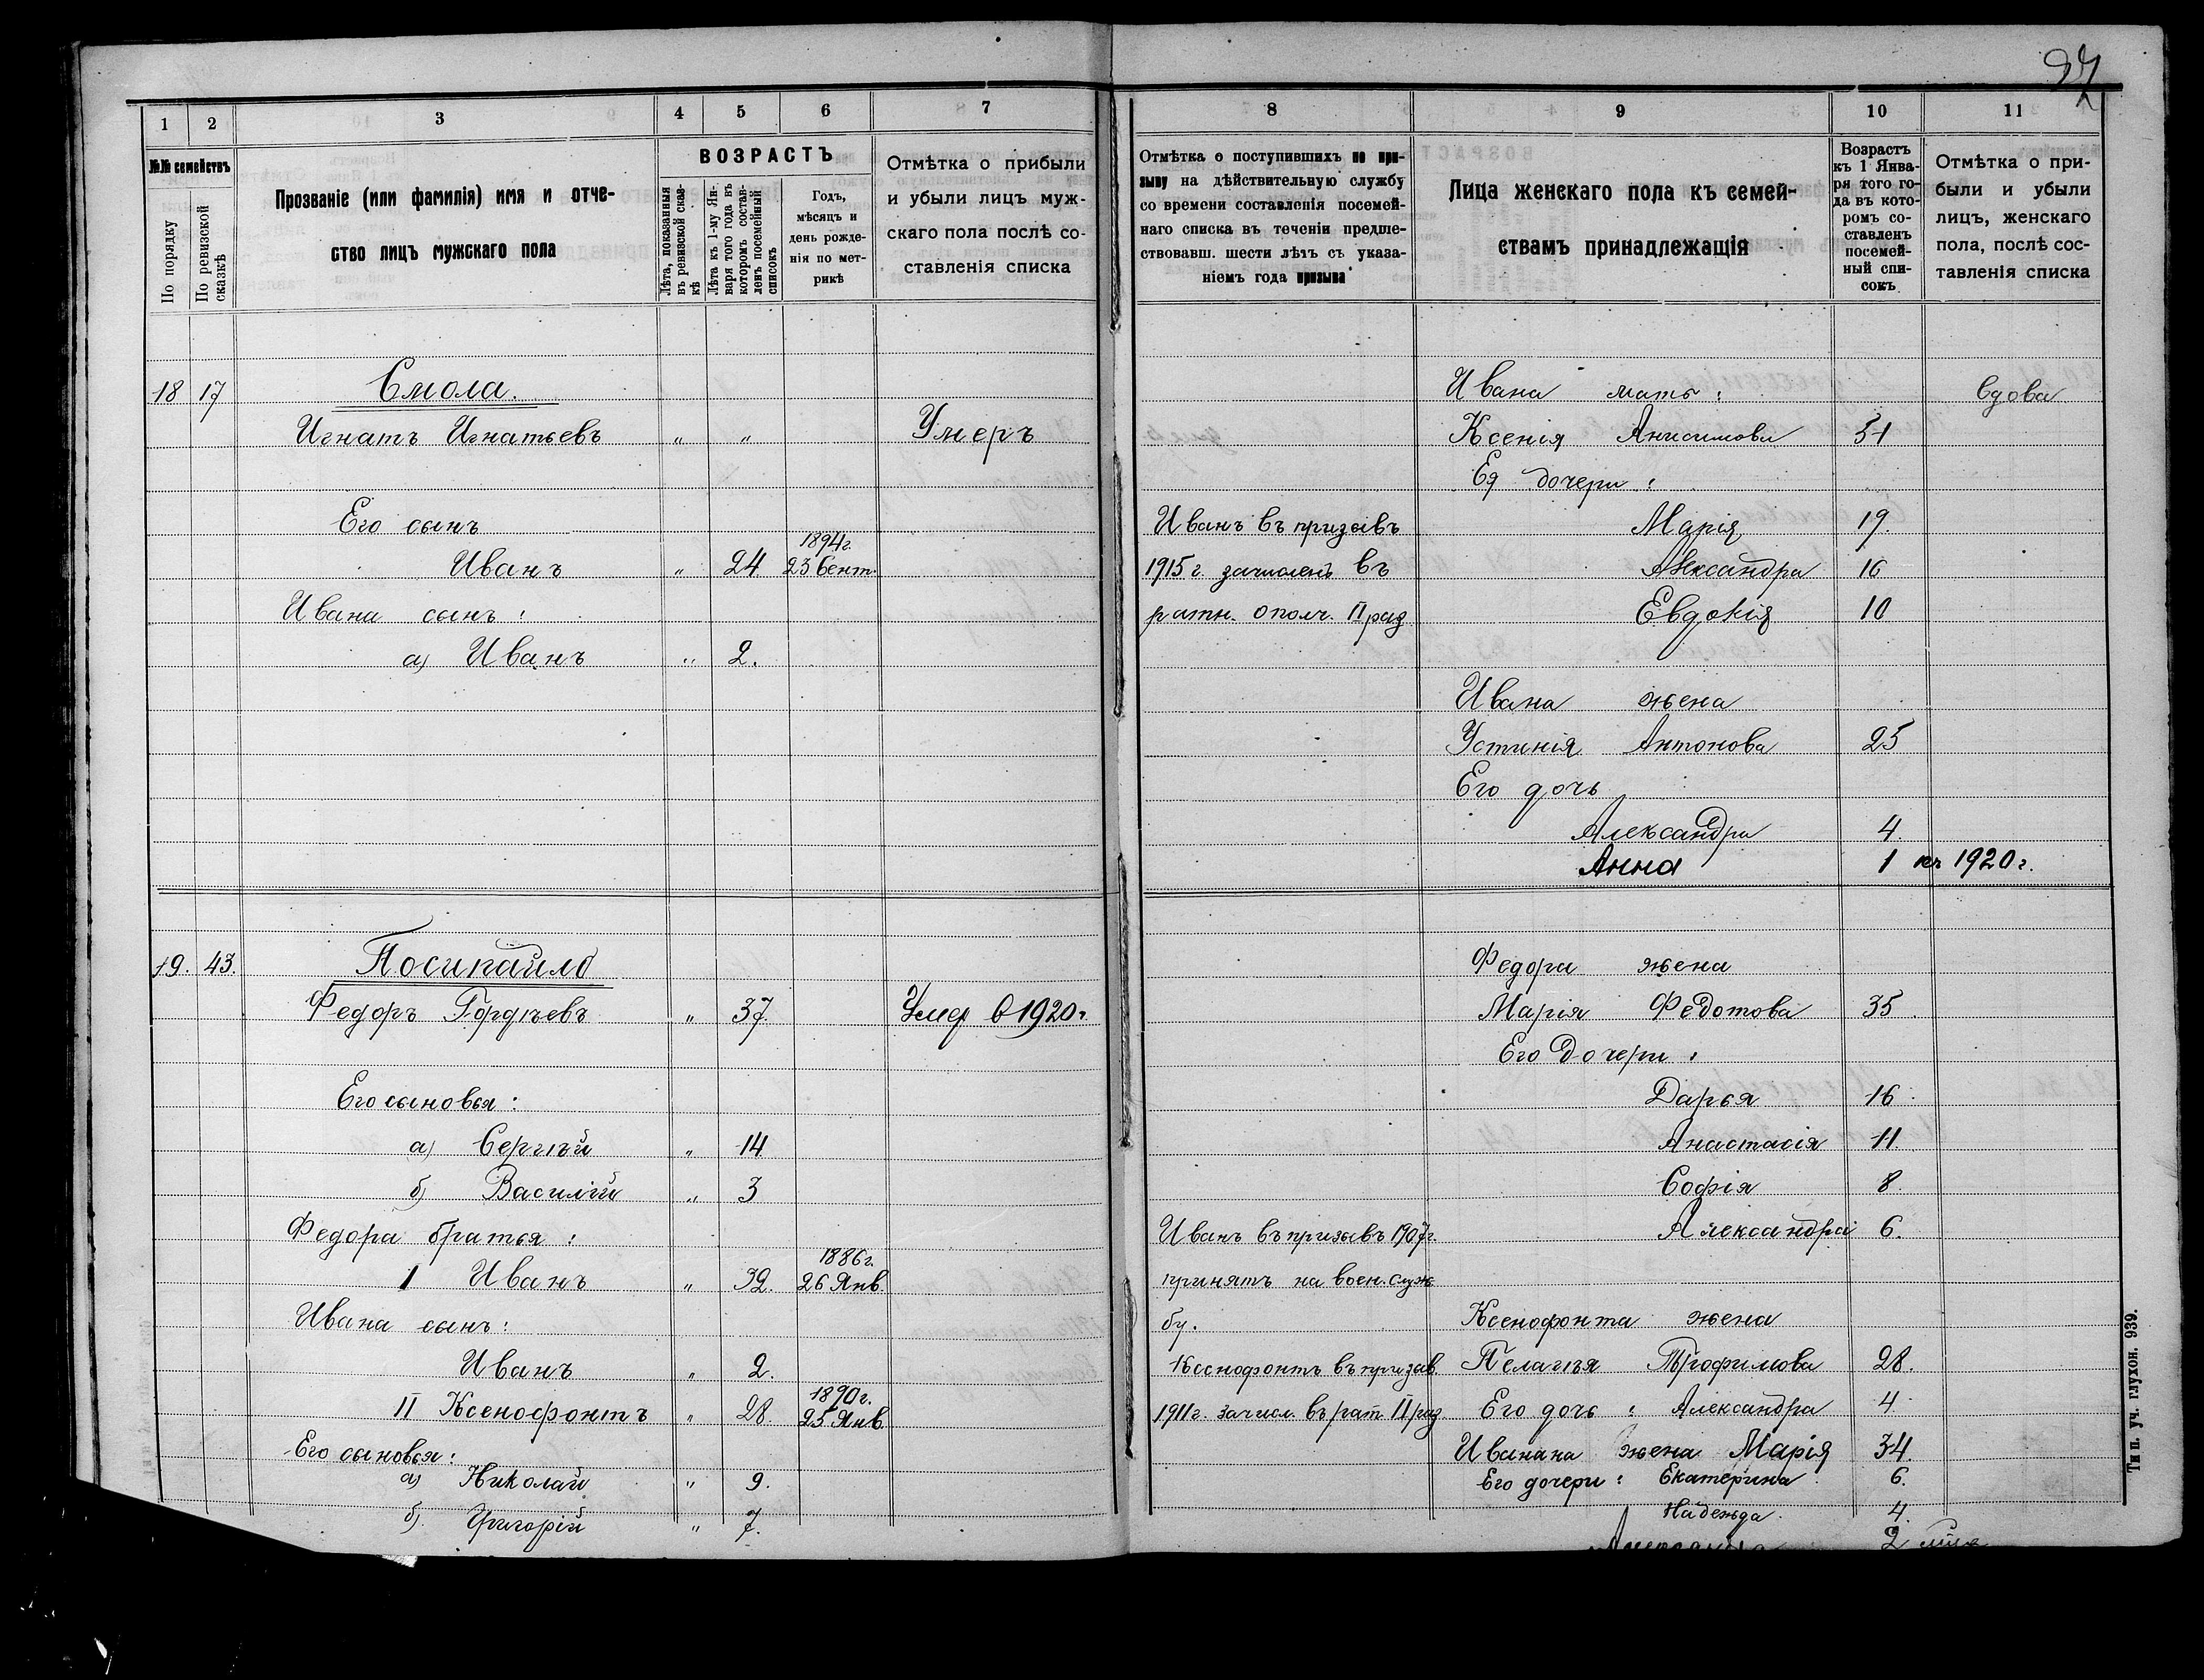 27
1 2 3 4 5 6 7
№№ семействъ
По порядку
По ревизской сказкѣ
Прозваніе (или фамилія) имя и отче-
ство лицъ мужскаго пола
ВОЗРАСТЪ
Лѣта, показанныя въ ревизской сказкѣ
Лѣта къ 1-му Января того года въ которомъ составленъ посемейный списокъ
Годъ,
мѣсяцъ и
день рожде-
нія по мет-
рикѣ
Отмѣтка о прибыли
и убыли лицъ муж-
скаго пола послѣ со-
ставленія списка
18 17 Смола.
Игнатъ Игнатьевъ " " Умеръ
Его сынъ
1894 г.
Иванъ " 24 23 Сент.
Ивана сынъ:
а) Иванъ " 2.
19. 43. Посипайло
Федоръ Гордѣевъ " 37 Умер в 1920 г.
Его сыновья:
а) Сергѣй " 14
б) Василій " 3
Федора братья:
1886 г.
I Иванъ " 32. 26 Янв.
Ивана сынъ:
Иванъ " 2.
1890 г.
II Ксенофонтъ " 28. 25 Янв.
Его сыновья:
а) Николай " 9.
б) Григорій " 7.
8 9 10 11
Отмѣтка о поступившихъ по при-
зыву на дѣйствительную службу
со времени составленія посемей-
наго списка въ теченіи предше-
ствовавш. шести лѣтъ съ указа-
ніемъ года призыва
Лица женскаго пола къ семей-
ствамъ принадлежащія
Возрастъ
къ 1 Янва-
ря того го-
да въ кото-
ромъ со-
ставленъ
посемей-
ный спи-
сокъ
Отмѣтка о при-
были и убыли
лицъ, женскаго
пола, послѣ сос-
тавленія списка
Ивана мать: Вдова
Ксенія Анисимова 51
Ея дочери:
Иванъ въ призывъ Марія 19.
1915 г. зачисленъ въ Александра 16
ратн. ополч. II раз. Евдокія 10
Ивана жена
Устинія Антонова 25
Его дочь
Александра 4.
Анна 1 къ 1920 г.
Федора жена
Марія Федотова 35
Его дочери:
Дарья 16
Анастасія 11.
Софія 8.
Иванъ въ призывъ 1907 г. Александра 6.
принятъ на воен. служ
бу. Ксенофонта жена
Ксенофонтъ въ призыв Пелагѣя Трофимова 28.
1911 г. зачисл. въ рат. II раз. Его дочь: Александра 4
Иванана жена Марія 34.
Его дочери: Екатерина 6.
Надежда. 4.
2
Тип. уч. глухон. 939.